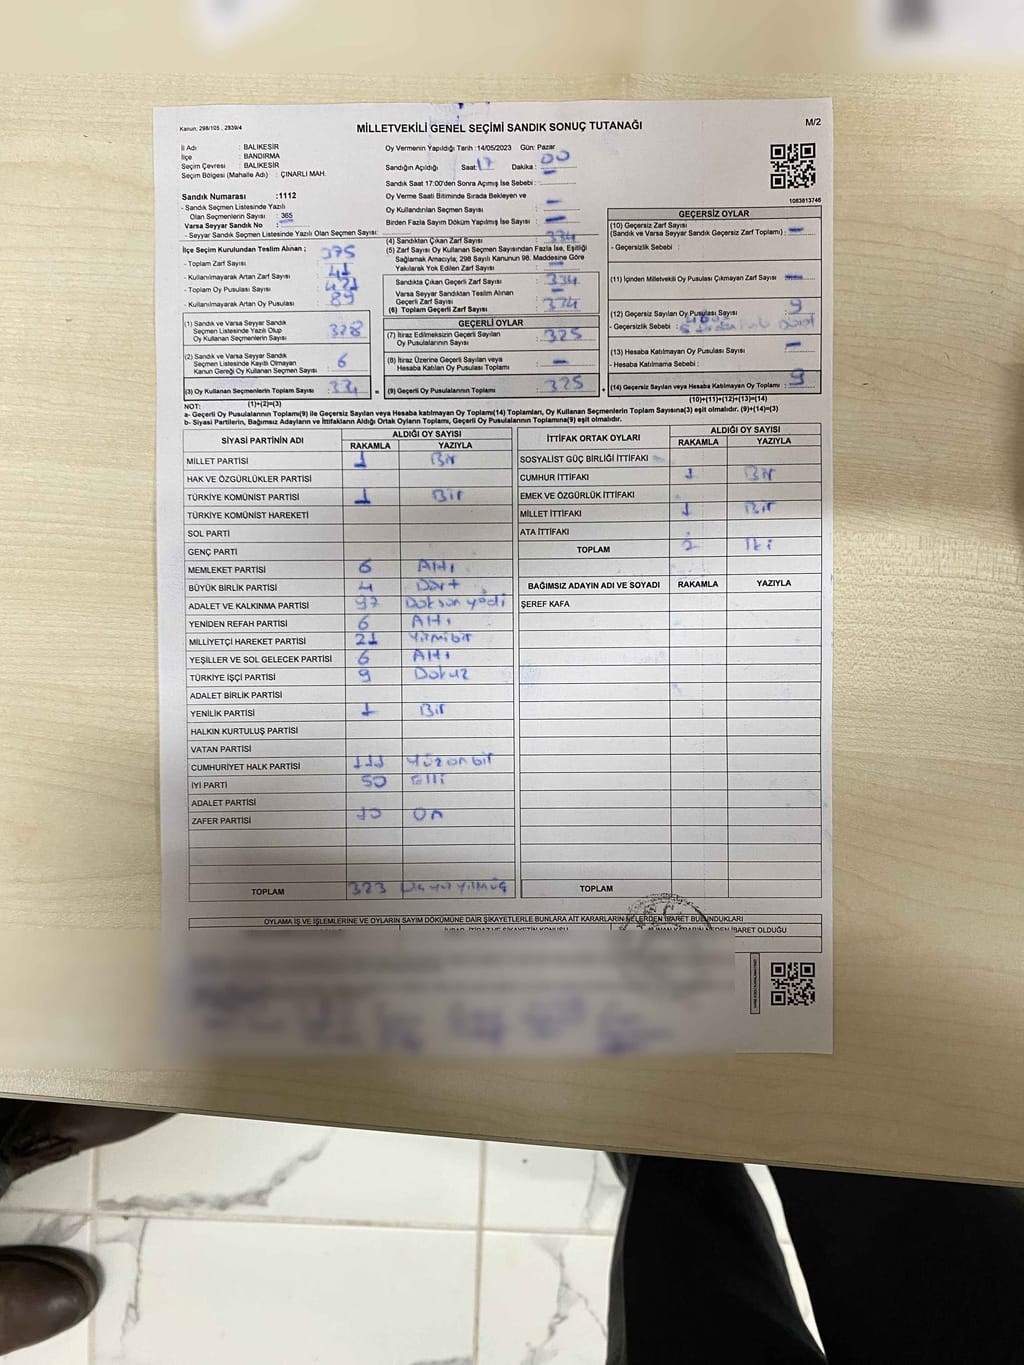 Kanun: 298/105 , 2839/4
MİLLETVEKİLİ GENEL SEÇİMİ SANDIK SONUÇ TUTANAĞI
M/2
İl Adı : BALIKESİR
İlçe : BANDIRMA
Seçim Çevresi : BALIKESİR
Seçim Bölgesi (Mahalle Adı) : ÇINARLI MAH.
Sandık Numarası :1112
- Sandık Seçmen Listesinde Yazılı
Olan Seçmenlerin Sayısı : 365
Varsa Seyyar Sandık No :
- Seyyar Sandık Seçmen Listesinde Yazılı Olan Seçmen Sayısı:
Oy Vermenin Yapıldığı Tarih :14/05/2023 Gün: Pazar
Sandığın Açıldığı Saat: 17 Dakika : 00
Sandık Saat 17:00'den Sonra Açmış İse Sebebi :
Oy Verme Saati Bitiminde Sırada Bekleyen ve
Oy Kullandırılan Seçmen Sayısı —
Birden Fazla Sayım Döküm Yapılmış İse Sayısı : —
1083813746
İlçe Seçim Kurulundan Teslim Alınan ;
- Toplam Zarf Sayısı : 375
- Kullanılmayarak Artan Zarf Sayısı : 41
- Toplam Oy Pusulası Sayısı : 421
- Kullanılmayarak Artan Oy Pusulası : 89
(1) Sandık ve Varsa Seyyar Sandık
Seçmen Listesinde Yazılı Olup
Oy Kullanan Seçmenlerin Sayısı : 328
(2) Sandık ve Varsa Seyyar Sandık
Seçmen Listesinde Kayıtlı Olmayan
Kanun Gereği Oy Kullanan Seçmen Sayısı : 6
(3) Oy Kullanan Seçmenlerin Toplam Sayısı : 334
(1)+(2)=(3)
(4) Sandıktan Çıkan Zarf Sayısı : 334
(5) Zarf Sayısı Oy Kullanan Seçmen Sayısından Fazla İse, Eşitliği
Sağlamak Amacıyla; 298 Sayılı Kanunun 98. Maddesine Göre
Yakılarak Yok Edilen Zarf Sayısı : —
Sandıkta Çıkan Geçerli Zarf Sayısı : 334
Varsa Seyyar Sandıktan Teslim Alınan
Geçerli Zarf Sayısı : —
(6) Toplam Geçerli Zarf Sayısı : 334
GEÇERLİ OYLAR
(7) İtiraz Edilmeksizin Geçerli Sayılan
Oy Pusulalarının Sayısı : 325
(8) İtiraz Üzerine Geçerli Sayılan veya
Hesaba Katılan Oy Pusulası Toplamı : —
= (9) Geçerli Oy Pusulalarının Toplamı : 325
GEÇERSİZ OYLAR
(10) Geçersiz Zarf Sayısı
(Sandık ve Varsa Seyyar Sandık Geçersiz Zarf Toplamı) : —
- Geçersizlik Sebebi :
(11) İçinden Milletvekili Oy Pusulası Çıkmayan Zarf Sayısı : —
(12) Geçersiz Sayılan Oy Pusulası Sayısı : 9
- Geçersizlik Sebebi :
(13) Hesaba Katılmayan Oy Pusulası Sayısı : —
- Hesaba Katılmama Sebebi :
+ (14) Geçersiz Sayılan veya Hesaba Katılmayan Oy Toplamı : 9
(10)+(11)+(12)+(13)=(14)
NOT:
a- Geçerli Oy Pusulalarının Toplamı(9) ile Geçersiz Sayılan veya Hesaba katılmayan Oy Toplam(14) Toplamları, Oy Kullanan Seçmenlerin Toplam Sayısına(3) eşit olmalıdır. (9)+(14)=(3)
b- Siyasi Partilerin, Bağımsız Adayların ve İttifakların Aldığı Ortak Oyların Toplamı, Geçerli Oy Pusulalarının Toplamına(9) eşit olmalıdır.
SİYASİ PARTİNİN ADI ALDIĞI OY SAYISI
RAKAMLA YAZIYLA
MİLLET PARTİSİ 1 Bir
HAK VE ÖZGÜRLÜKLER PARTİSİ
TÜRKİYE KOMÜNİST PARTİSİ 1 Bir
TÜRKİYE KOMÜNİST HAREKETİ
SOL PARTİ
GENÇ PARTİ
MEMLEKET PARTİSİ 6 Altı
BÜYÜK BİRLİK PARTİSİ 4 Dört
ADALET VE KALKINMA PARTİSİ 97 Doksan yedi
YENİDEN REFAH PARTİSİ 6 Altı
MİLLİYETÇİ HAREKET PARTİSİ 21 Yirmibir
YEŞİLLER VE SOL GELECEK PARTİSİ 6 Altı
TÜRKİYE İŞÇİ PARTİSİ 9 Dokuz
ADALET BİRLİK PARTİSİ
YENİLİK PARTİSİ 1 Bir
HALKIN KURTULUŞ PARTİSİ
VATAN PARTİSİ
CUMHURİYET HALK PARTİSİ 111 Yüzonbir
İYİ PARTİ 50 Elli
ADALET PARTİSİ
ZAFER PARTİSİ 10 On
TOPLAM 323 Üçyüzyirmiüç
İTTİFAK ORTAK OYLARI ALDIĞI OY SAYISI
RAKAMLA YAZIYLA
SOSYALİST GÜÇ BİRLİĞİ İTTİFAKI
CUMHUR İTTİFAKI 1 Bir
EMEK VE ÖZGÜRLÜK İTTİFAKI
MİLLET İTTİFAKI 1 Bir
ATA İTTİFAKI
TOPLAM 2 İki
BAĞIMSIZ ADAYIN ADI VE SOYADI RAKAMLA YAZIYLA
ŞEREF KAFA
TOPLAM
OYLAMA İŞ VE İŞLEMLERİNE VE OYLARIN SAYIM DÖKÜMÜNE DAİR ŞİKAYETLERLE BUNLARA AİT KARARLARIN NELERDEN İBARET BULUNDUKLARI